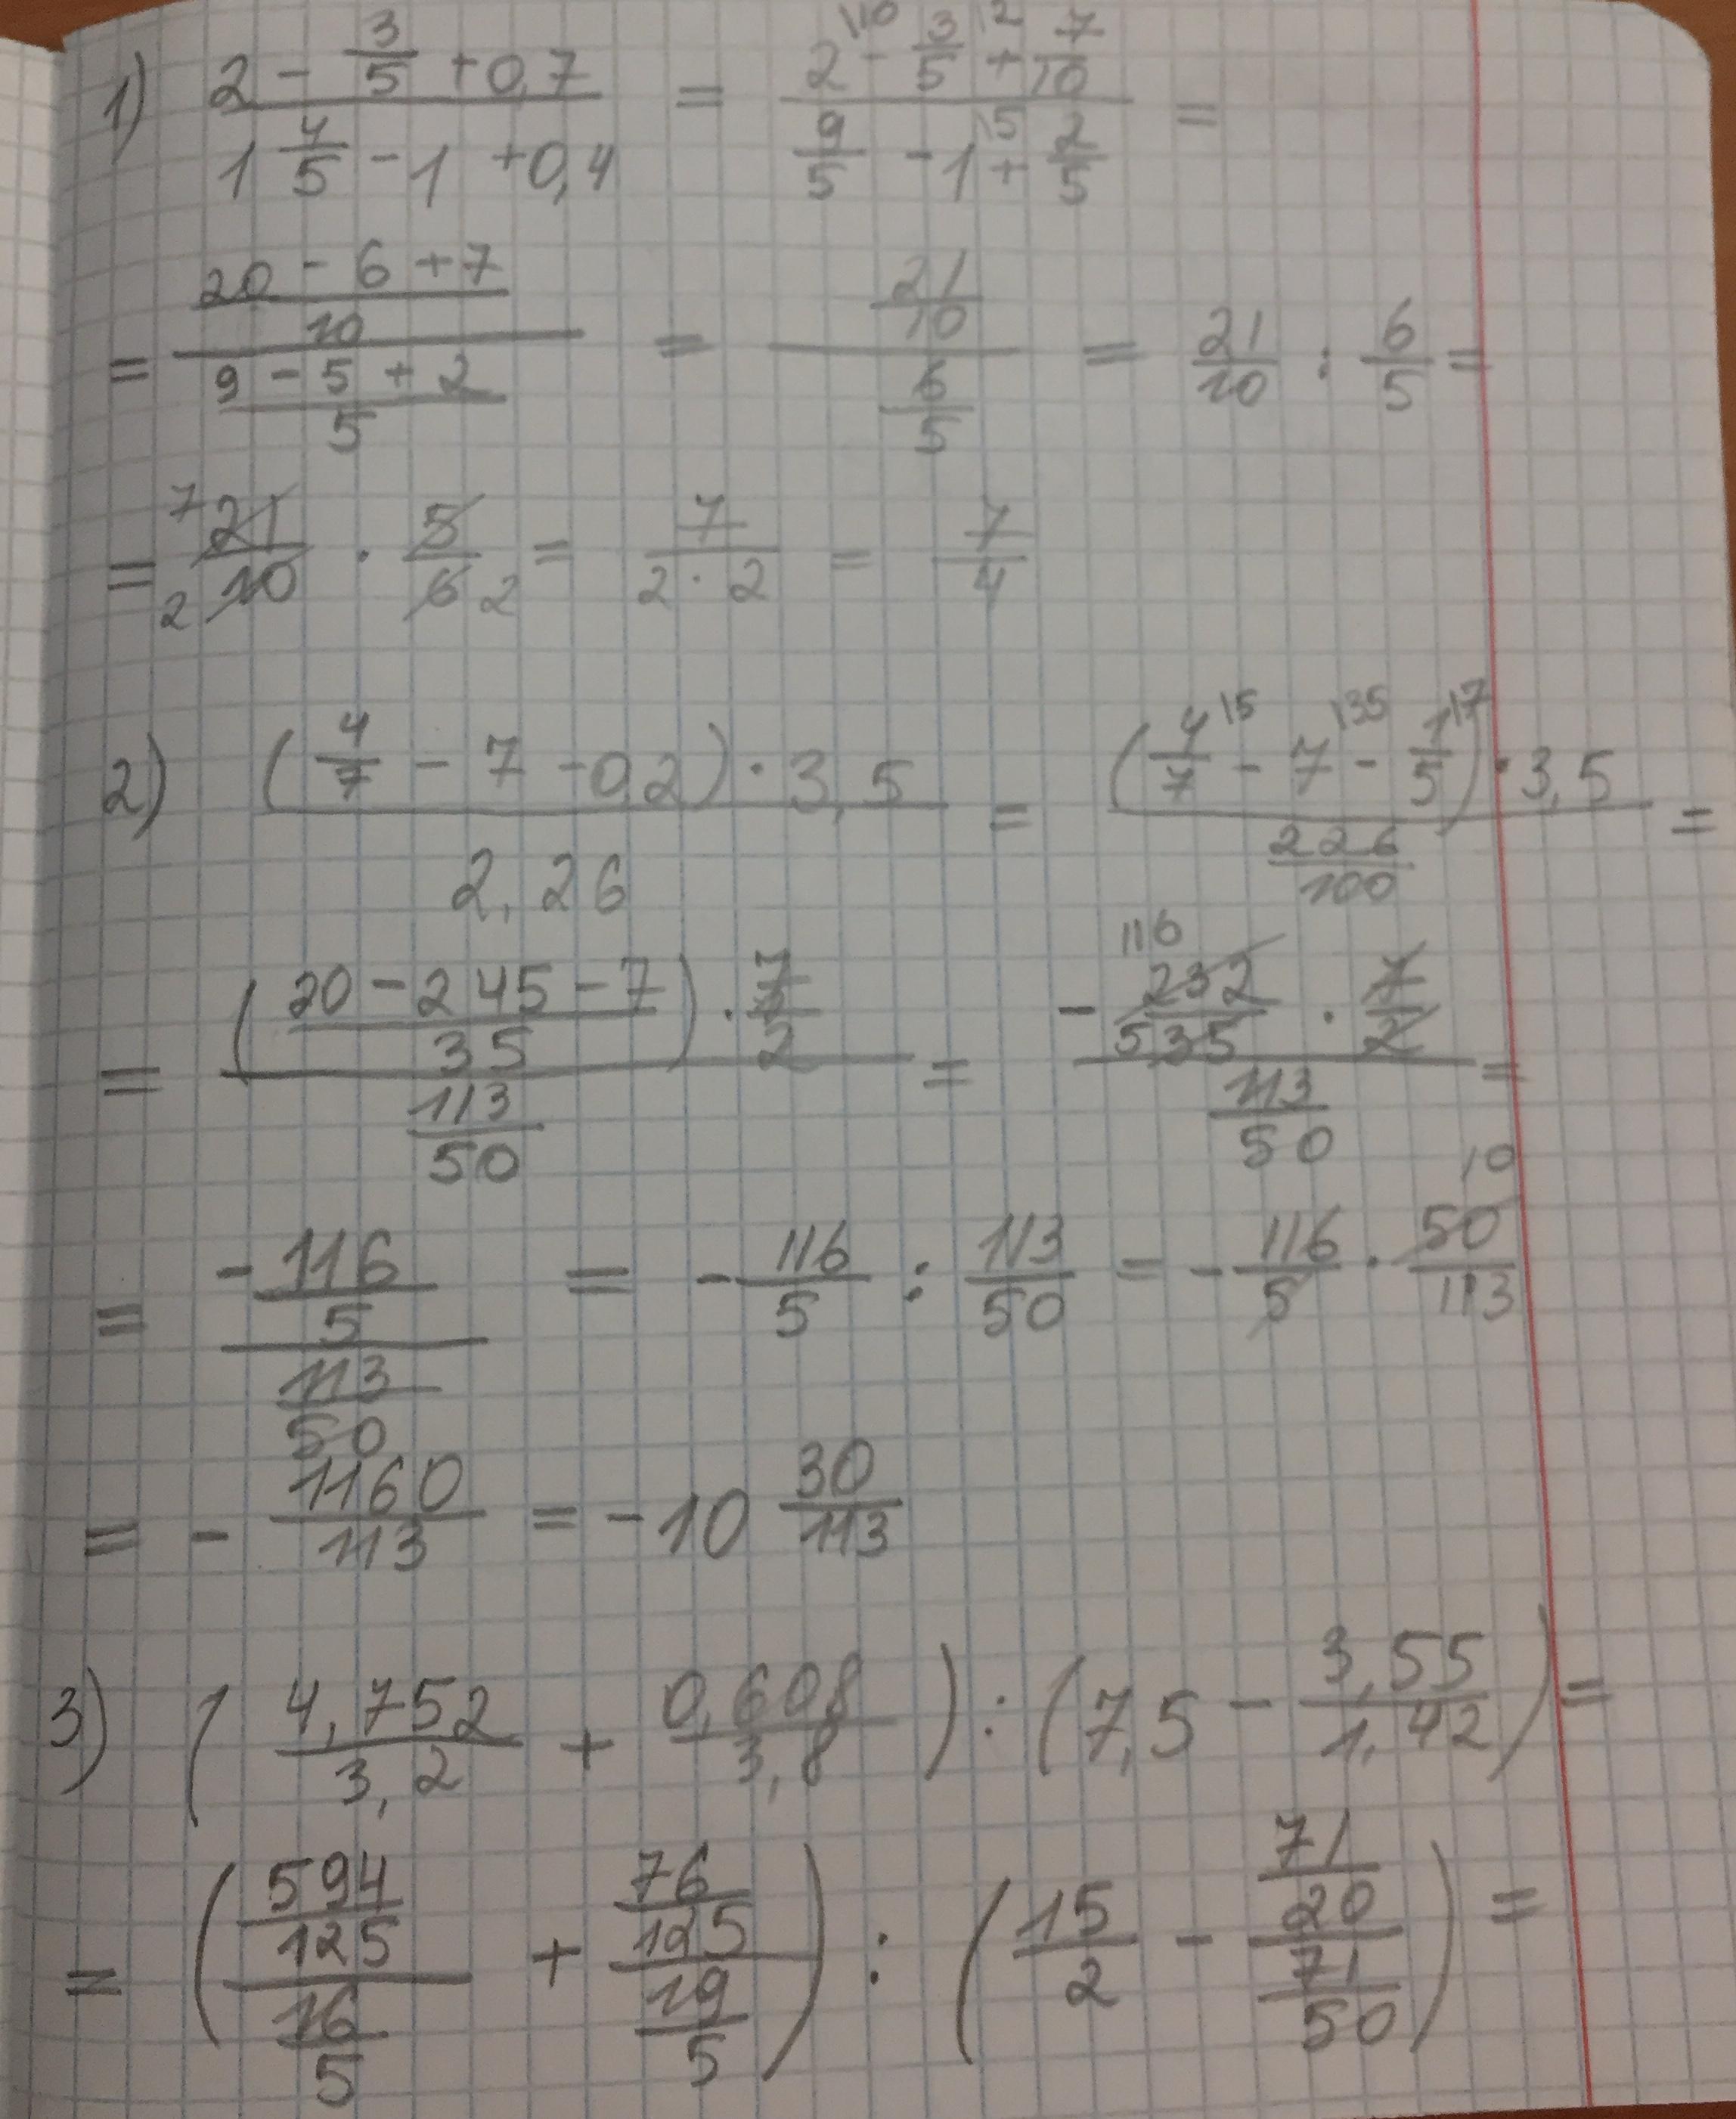 1) (2 - 3/5 + 0,7)/(1 4/5 - 1 + 0,4) = (2\10 - 3/5\2 + 7/10)/(9/5 - 1\5 + 2/5) =
= ((20 - 6 + 7)/10)/((9 - 5 + 2)/5) = (21/10)/(6/5) = 21/10 : 6/5 =
= 7 21/2 10 · 5/6 2 = 7/(2 · 2) = 7/4
2) ((4/7 - 7 - 0,2) · 3,5)/2,26 = ((4/7\5 - 7\35 - 1/5\7) · 3,5)/(226/100) =
= (((20 - 245 - 7)/35) · 7/2)/(113/50) = (- 116 232/5 35 · 7/2)/(113/50) =
= (-116/5)/(113/50) = - 116/5 : 113/50 = - 116/5 · 50 10/113
= - 1160/113 = -10 30/113
3) (4,752/3,2 + 0,608/3,8) : (7,5 - 3,55/1,42) =
= ((594/125)/(16/5) + (76/125)/(19/5)) : (15/2 - (71/20)/(71/50)) =